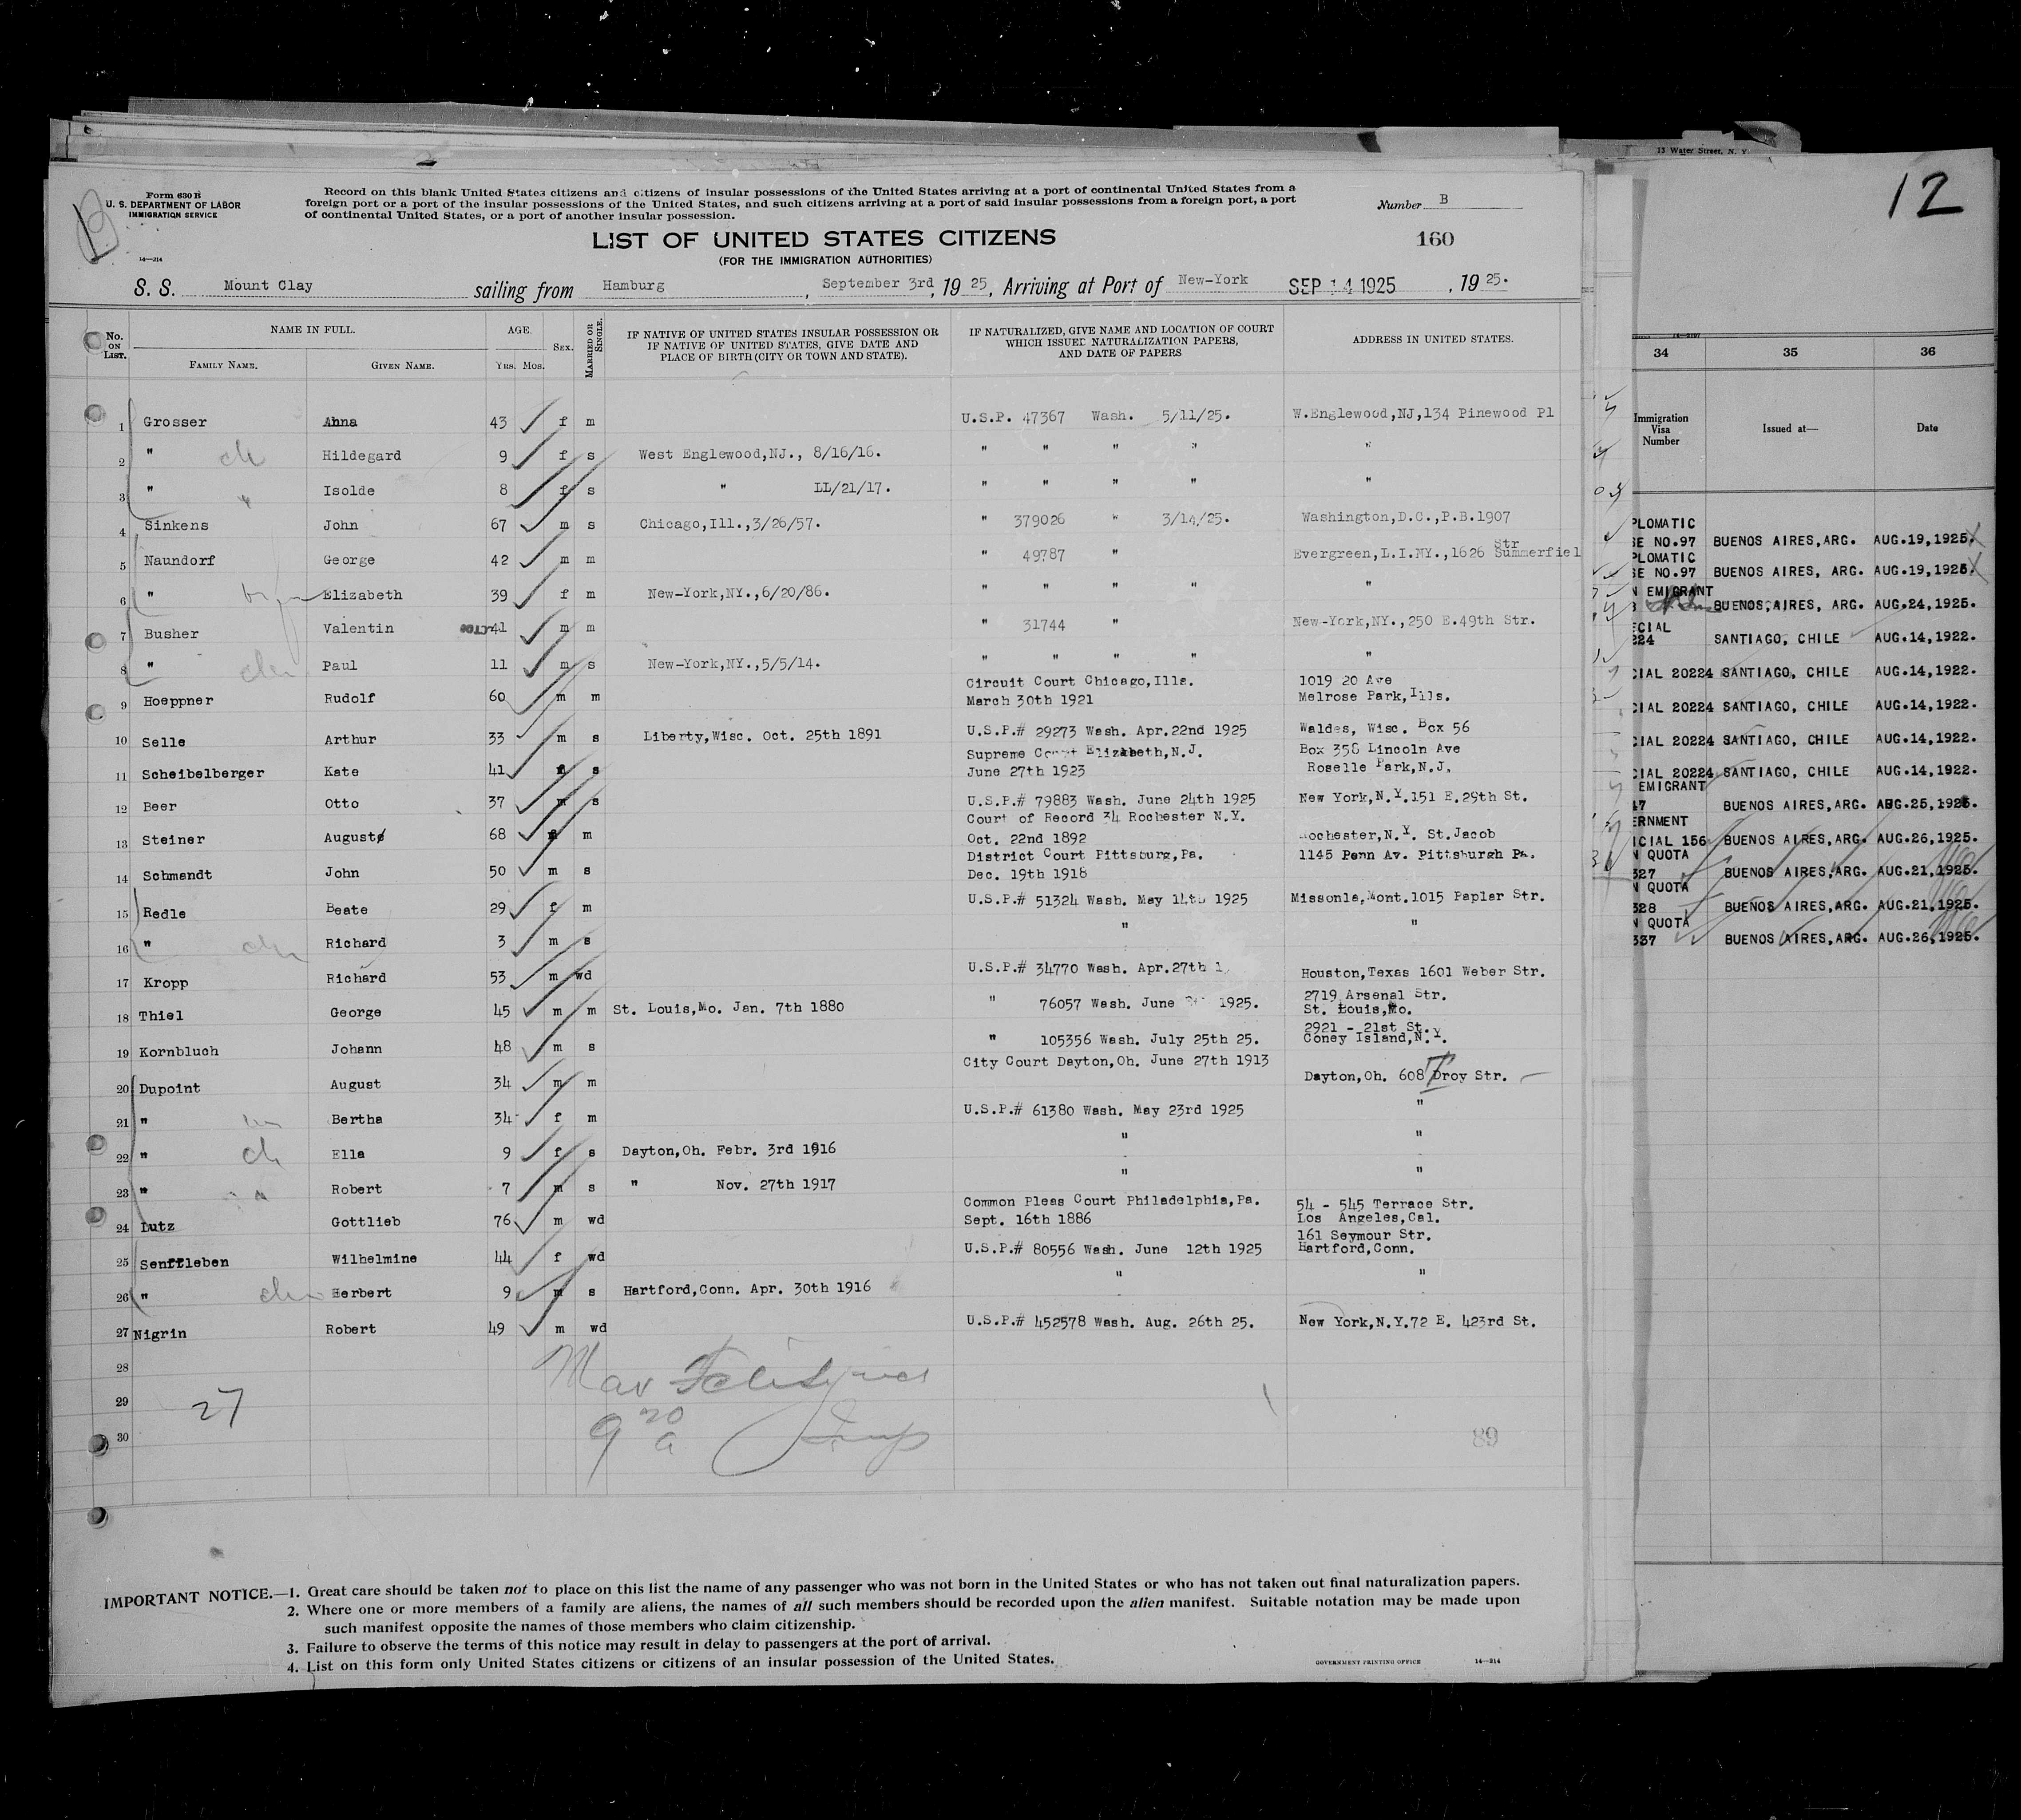 13 Water Street, N. Y.
12
Form 630 B
U. S. DEPARTMENT OF LABOR
IMMIGRATION SERVICE
14—214
Record on this blank United States citizens and citizens of insular possessions of the United States arriving at a port of continental United States from a
foreign port or a port of the insular possessions of the United States, and such citizens arriving at a port of said insular possessions from a foreign port, a port
of continental United States, or a port of another insular possession.
Number B
LIST OF UNITED STATES CITIZENS
160
(FOR THE IMMIGRATION AUTHORITIES)
S. S. Mount Clay sailing from Hamburg, September 3rd, 1925, Arriving at Port of New-York SEP 14 1925, 1925.
No. ON LIST. NAME IN FULL. AGE. SEX. MARRIED OR SINGLE. IF NATIVE OF UNITED STATES INSULAR POSSESSION OR IF NATIVE OF UNITED STATES, GIVE DATE AND PLACE OF BIRTH (CITY OR TOWN AND STATE). IF NATURALIZED, GIVE NAME AND LOCATION OF COURT WHICH ISSUED NATURALIZATION PAPERS, AND DATE OF PAPERS ADDRESS IN UNITED STATES.
FAMILY NAME. GIVEN NAME. YRS. MOS.
1 Grosser Anna 43 f m U.S.P. 47367 Wash. 5/11/25. W.Englewood,NJ,134 Pinewood Pl
2 " ch Hildegard 9 f s West Englewood,NJ., 8/16/16. " " " " "
3 " " Isolde 8 f s " LL/21/17. " " " " "
4 Sinkens John 67 m s Chicago,Ill.,3/26/57. " 379026 " 3/14/25. Washington,D.C.,P.B.1907
5 Naundorf George 42 m m " 49787 " Evergreen,L.I.NY.,1626 Summerfiel Str
6 " Elizabeth 39 f m New-York,NY.,6/20/86. " " " " "
7 Busher Valentin 41 m m " 31744 " New-York,NY.,250 E.49th Str.
8 " Paul 11 m s New-York,NY.,5/5/14. " " " " "
9 Hoeppner Rudolf 60 m m Circuit Court Chicago,Ills. March 30th 1921 1019 20 Ave Melrose Park,Ills.
10 Selle Arthur 33 m s Liberty,Wisc. Oct. 25th 1891 U.S.P.# 29273 Wash. Apr.22nd 1925 Waldes, Wisc. Box 56
11 Scheibelberger Kate 41 f s Supreme Court Elizabeth,N.J. June 27th 1923 Box 358 Lincoln Ave Roselle Park,N.J.
12 Beer Otto 37 m s U.S.P.# 79883 Wash. June 24th 1925 New York,N.Y.151 E.29th St.
13 Steiner August 68 m Court of Record 34 Rochester N.Y. Oct. 22nd 1892 Rochester,N.Y. St.Jacob
14 Schmandt John 50 m s District Court Pittsburg,Pa. Dec. 19th 1918 1145 Penn Av. Pittsburgh Pa.
15 Redle Beate 29 f m U.S.P.# 51324 Wash. May 14th 1925 Missonla,Mont.1015 Paplar Str.
16 " Richard 3 m s " "
17 Kropp Richard 53 m wd U.S.P.# 34770 Wash. Apr.27th Houston,Texas 1601 Weber Str.
18 Thiel George 45 m m St. Louis,Mo. Jan. 7th 1880 " 76057 Wash. June 1925. 2719 Arsenal Str. St. Louis,Mo.
19 Kornbluch Johann 48 m s " 105356 Wash. July 25th 25. 2921 - 21st St. Coney Island,N.Y.
20 Dupoint August 34 m m City Court Dayton,Oh. June 27th 1913 Dayton,Oh. 608 Droy Str.
21 " Bertha 34 f m U.S.P.# 61380 Wash. May 23rd 1925 "
22 " ch Ella 9 f s Dayton,Oh. Febr. 3rd 1916 " "
23 " " Robert 7 m s " Nov. 27th 1917 " "
24 Lutz Gottlieb 76 m wd Common Pleas Court Philadelphia,Pa. Sept. 16th 1886 54 - 545 Terrace Str. Los Angeles,Cal.
25 Senffleben Wilhelmine 44 f wd U.S.P.# 80556 Wash. June 12th 1925 161 Seymour Str. Hartford,Conn.
26 " Herbert 9 m s Hartford,Conn. Apr. 30th 1916 " "
27 Nigrin Robert 49 m wd U.S.P.# 452578 Wash. Aug. 26th 25. New York,N.Y.72 E. 423rd St.
28
29 27
30
9 20 a
89
IMPORTANT NOTICE.—1. Great care should be taken not to place on this list the name of any passenger who was not born in the United States or who has not taken out final naturalization papers.
2. Where one or more members of a family are aliens, the names of all such members should be recorded upon the alien manifest. Suitable notation may be made upon
such manifest opposite the names of those members who claim citizenship.
3. Failure to observe the terms of this notice may result in delay to passengers at the port of arrival.
4. List on this form only United States citizens or citizens of an insular possession of the United States.
GOVERNMENT PRINTING OFFICE 14—214
34 35 36
Immigration Visa Number Issued at— Date
PLOMATIC
SE NO.97 BUENOS AIRES,ARG. AUG.19,1925.
PLOMATIC
SE NO.97 BUENOS AIRES, ARG. AUG.19,1925.
N EMIGRANT
BUENOS,AIRES, ARG. AUG.24,1925.
ECIAL
224 SANTIAGO, CHILE AUG.14,1922.
CIAL 20224 SANTIAGO, CHILE AUG.14,1922.
CIAL 20224 SANTIAGO, CHILE AUG.14,1922.
CIAL 20224 SANTIAGO, CHILE AUG.14,1922.
CIAL 20224 SANTIAGO, CHILE AUG.14,1922.
EMIGRANT
47 BUENOS AIRES,ARG. AUG.25,1925.
ERNMENT
ICIAL 156 BUENOS AIRES,ARG. AUG.26,1925.
N QUOTA
327 BUENOS AIRES,ARG. AUG.21,1925.
N QUOTA
328 BUENOS AIRES,ARG. AUG.21,1925.
N QUOTA
337 BUENOS AIRES,ARG. AUG.26,1925.